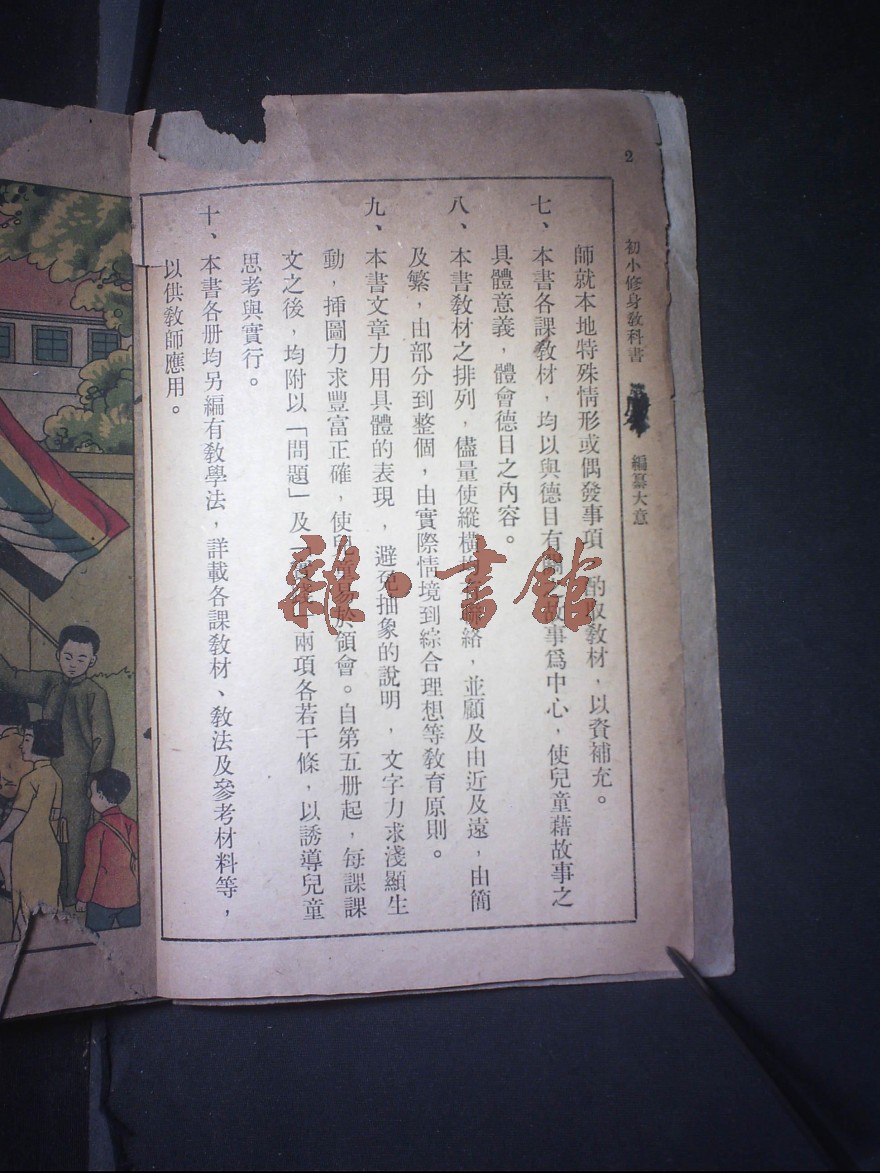 2
初小修身教科書 編纂大意
師就本地特殊情形或偶發事項,酌取教材,以資補充。
七、本書各課教材,均以與德目有 故事爲中心,使兒童藉故事之
具體意義,體會德目之內容。
八、本書教材之排列,儘量使縱橫 聯絡,並顧及由近及遠,由簡
及繁,由部分到整個,由實際情境到綜合理想等教育原則。
九、本書文章力用具體的表現,避免抽象的說明,文字力求淺顯生
動,挿圖力求豐富正確,使 易於領會。自第五册起,每課課
文之後,均附以「問題」及「 」兩項各若干條,以誘導兒童
思考與實行。
十、本書各册均另編有教學法,詳載各課教材、教法及參考材料等,
以供教師應用。
雜·書館